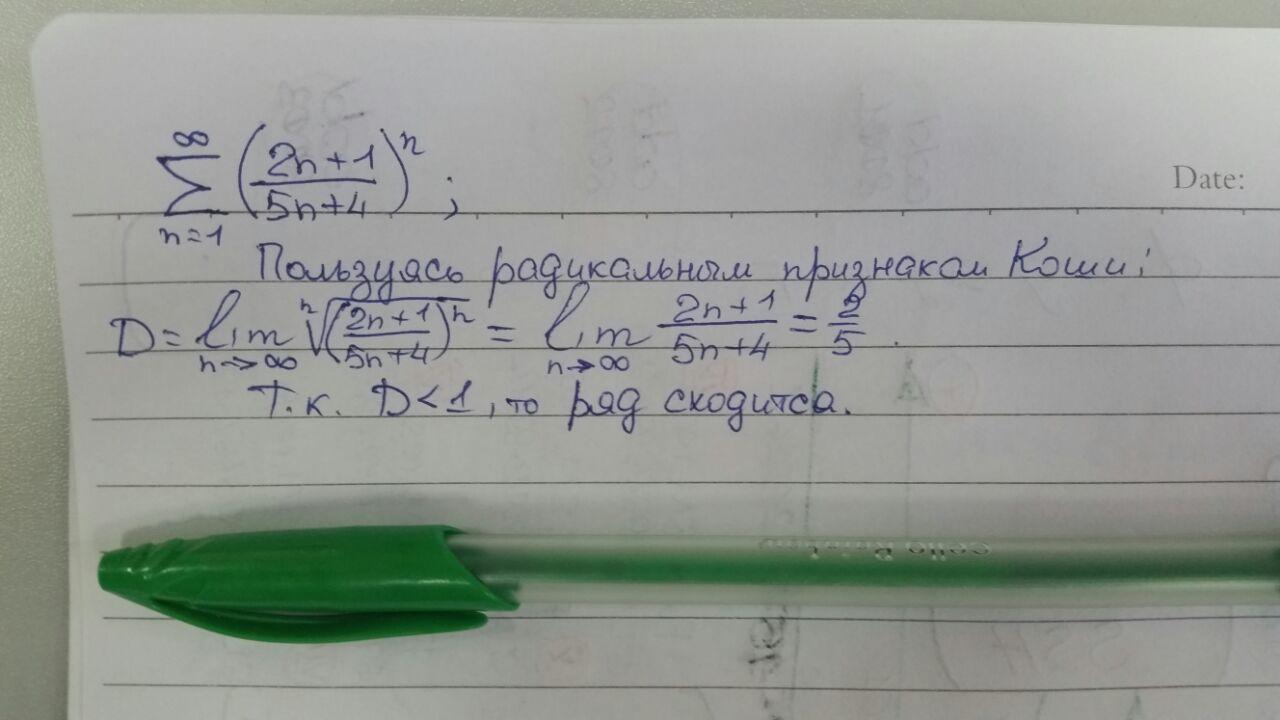 Date:
∑_{n=1}^{∞} ((2n+1)/(5n+4))^n ;
Пользуясь радикальным признаком Коши:
D = lim_{n→∞} ⁿ√(((2n+1)/(5n+4))^n) = lim_{n→∞} (2n+1)/(5n+4) = 2/5 .
Т.к. D<1, то ряд сходится.